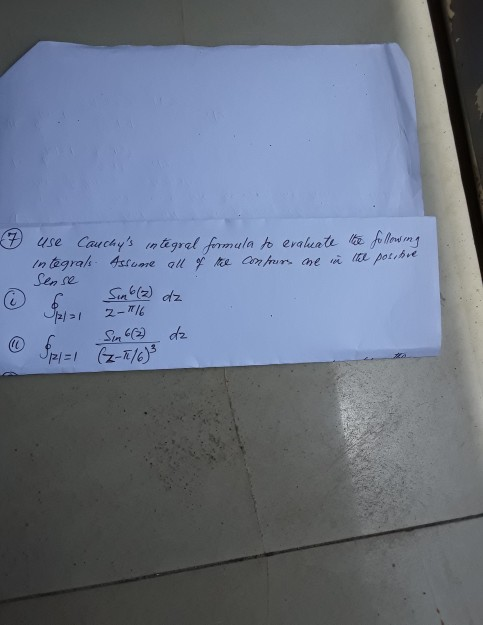 ⑦ Use Cauchy's integral formula to evaluate the following
Integrals. Assume all of the contours are in the positive
Sense
(i) ∮|z|=1 Sin^6(z)/(z-π/6) dz
(ii) ∮|z|=1 Sin^6(z)/(z-π/6)^3 dz